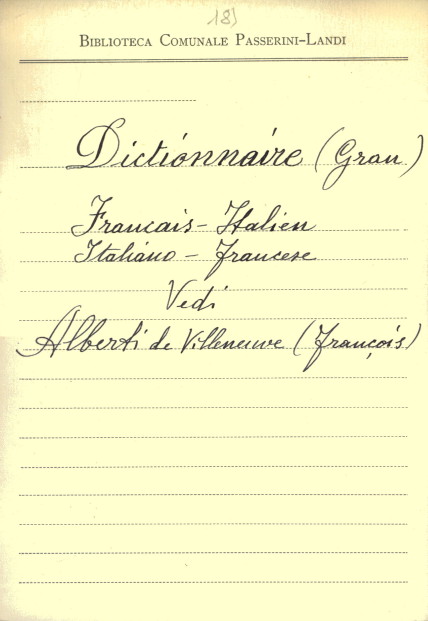 18)
BIBLIOTECA COMUNALE PASSERINI-LANDI
Dictionnaire (Gran)
Francais - Italien
Italiano - francese
Vedi
Alberti de Villeneuve (François)